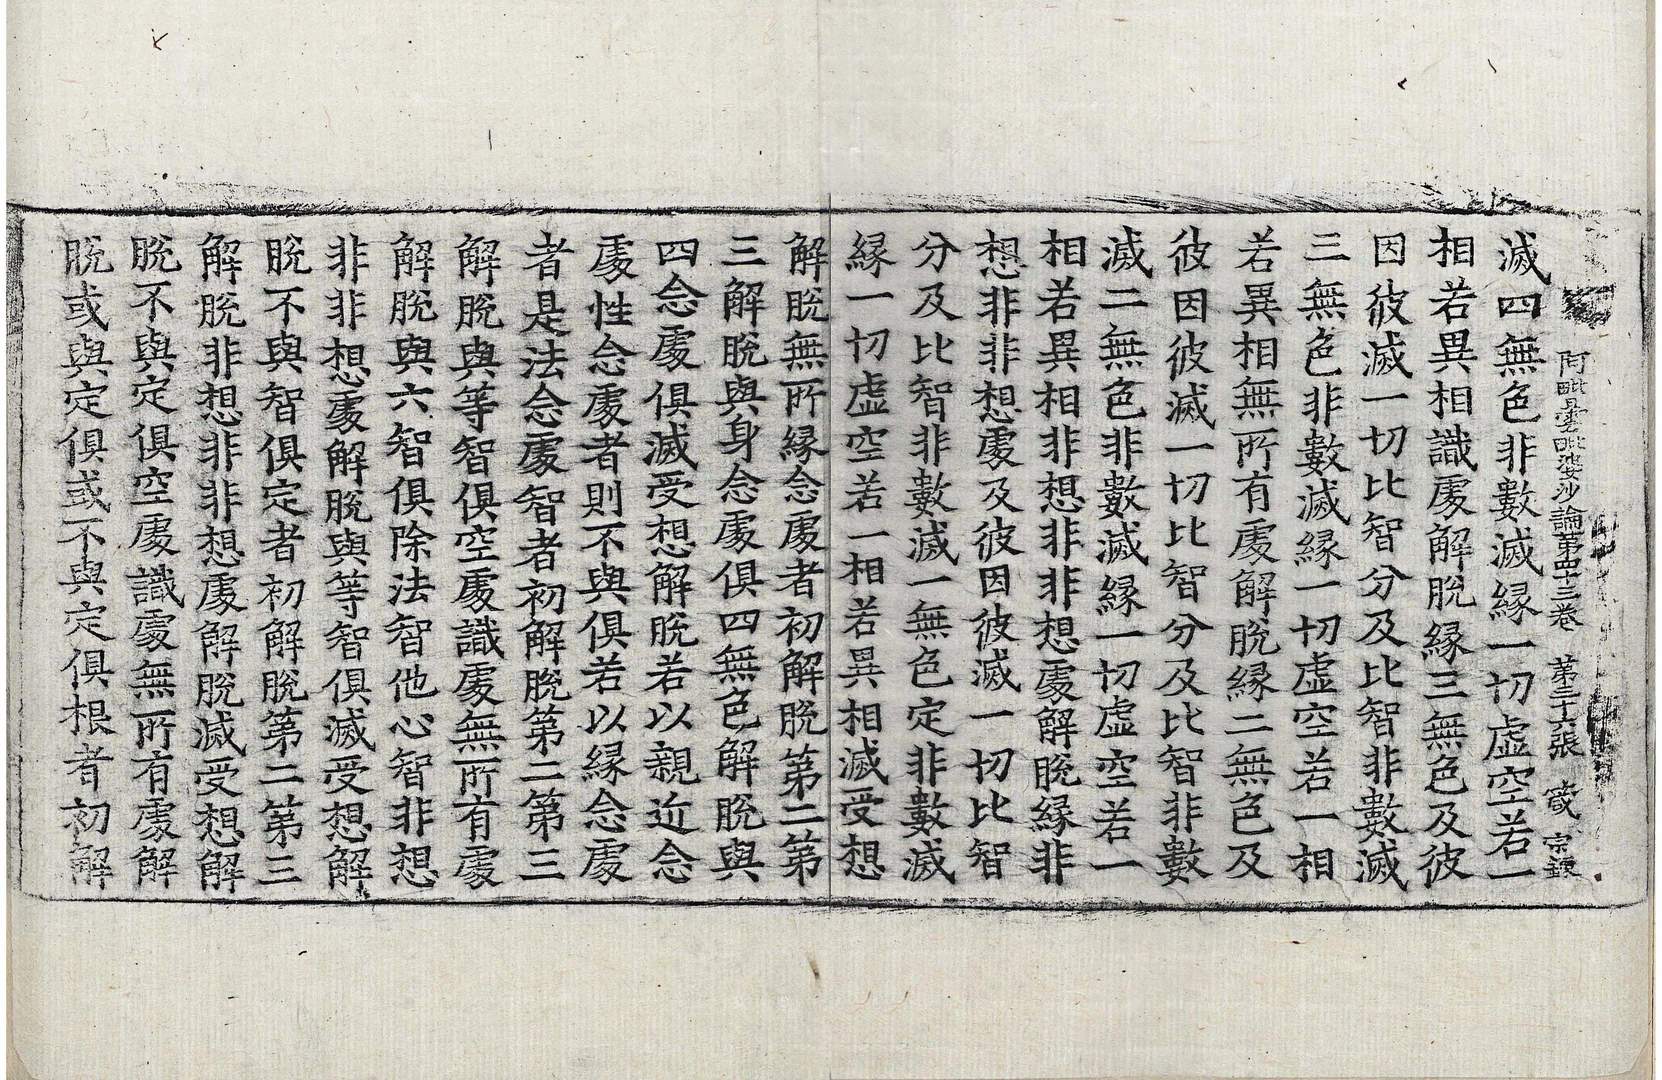 阿毗曇毗婆沙論第四十三卷 第三十六張 箴 宗鎳
滅四無色非數滅緣一切虛空若一
相若異相識處解脫緣三無色及彼
因彼滅一切比智分及比智非數滅
三無色非數滅緣一切虛空若一相
若異相無所有處解脫緣二無色及
彼因彼滅一切比智分及比智非數
滅二無色非數滅緣一切虛空若一
相若異相非想非非想處解脫緣非
想非非想處及彼因彼滅一切比智
分及比智非數滅一無色定非數滅
緣一切虛空若一相若異相滅受想
解脫無所緣念處者初解脫第二第
三解脫與身念處俱四無色解脫與
四念處俱滅受想解脫若以親近念
處性念處者則不與俱若以緣念處
者是法念處智者初解脫第二第三
解脫與等智俱空處識處無所有處
解脫與六智俱除法智他心智非想
非非想處解脫與等智俱滅受想解
脫不與智俱定者初解脫第二第三
解脫非想非非想處解脫滅受想解
脫不與定俱空處識處無所有處解
脫或與定俱或不與定俱根者初解